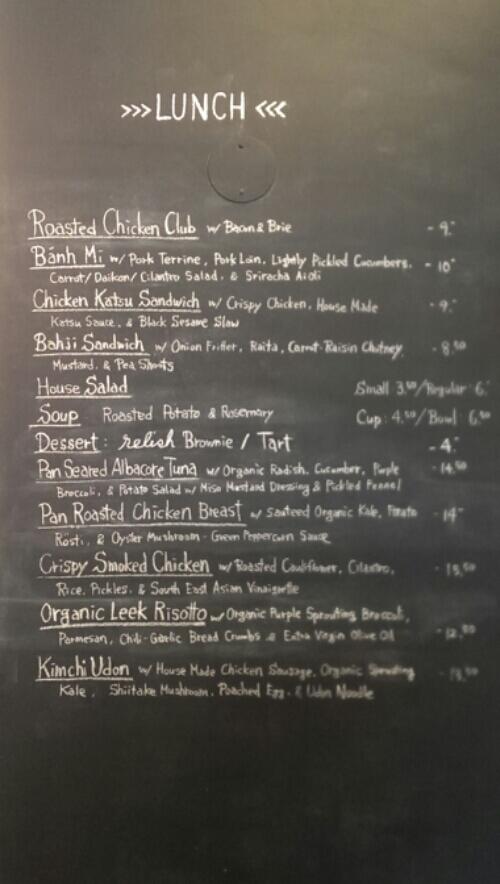 >>> LUNCH <<<
Roasted Chicken Club w/ Bacon & Brie - 9.-
Bánh Mi w/ Pork Terrine, Pork Loin, Lightly Pickled Cucumbers, - 10-
Carrot/Daikon/Cilantro Salad, & Sriracha Aioli
Chicken Katsu Sandwich w/ Crispy Chicken, House Made - 9.-
Katsu Sauce, & Black Sesame Slaw
Bahji Sandwich w/ Onion Fritter, Raita, Carrot-Raisin Chutney, - 8.50
Mustard, & Pea Shoots
House Salad Small 3.50/Regular 6.-
Soup Roasted Potato & Rosemary Cup: 4.50/Bowl 6.50
Dessert: relish Brownie / Tart - 4.-
Pan Seared Albacore Tuna w/ Organic Radish, Cucumber, Purple - 14.50
Broccoli, & Potato Salad w/ Miso Mustard Dressing & Pickled Fennel
Pan Roasted Chicken Breast w/ Sauteed Organic Kale, Potato - 14-
Rösti, & Oyster Mushroom-Green Peppercorn Sauce
Crispy Smoked Chicken w/ Roasted Cauliflower, Cilantro,
Rice, Pickles, & South East Asian Vinaigrette
Organic Leek Risotto w/ Organic Purple Sprouting Broccoli,
Parmesan, Chili-Garlic Bread Crumbs & Extra Virgin Olive Oil - 12.50
Kimchi Udon w/ House Made Chicken Sausage, Organic Sprouting
Kale, Shiitake Mushroom, Poached Egg, & Udon Noodle